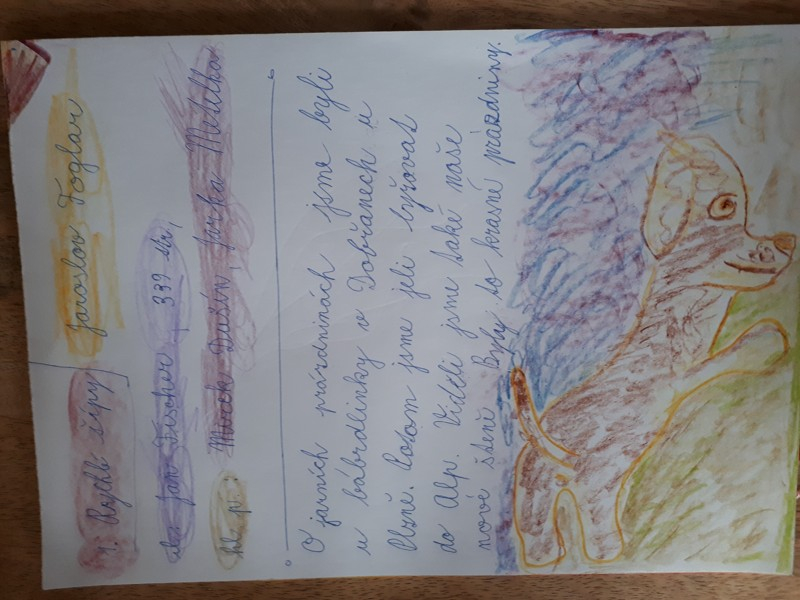 1. Rychlé šípy Jaroslav Foglar
ilu. Jan Fischer, 339 str,
hl. p.: Mirek Dušín, Jarka Metelka
O jarních prázdninách jsme byli
u bábrdlinky v Dobřanech u
Plzně. Potom jsme jeli lyžovat
do Alp. Viděli jsme také naše
nové štěně. Byly to krásné prázdniny.